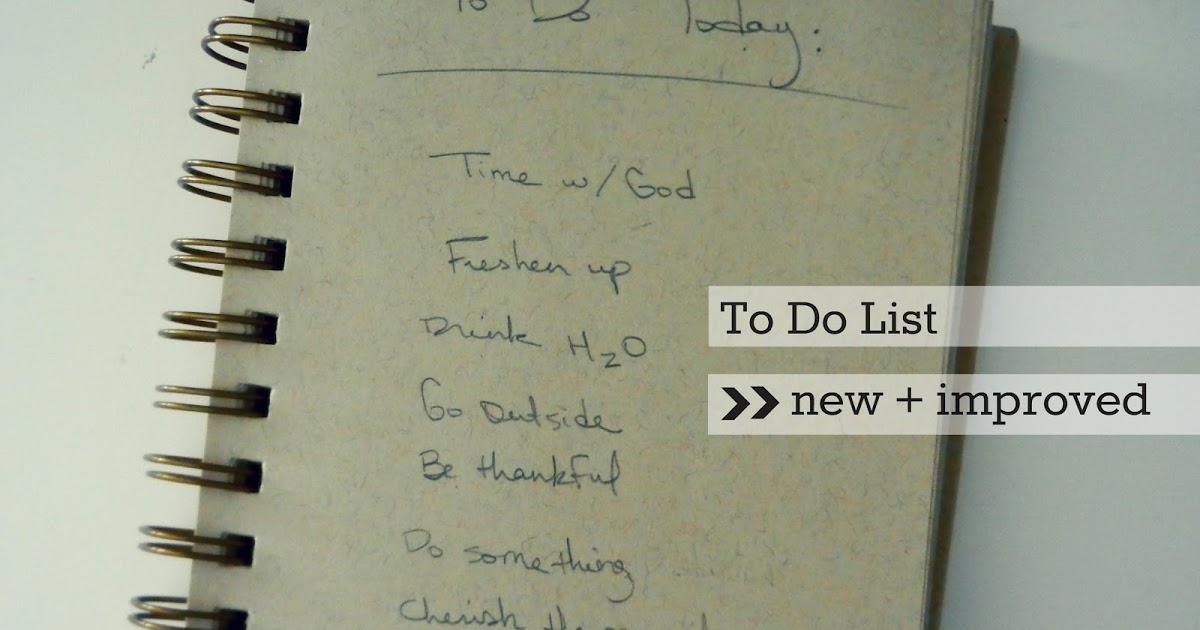 To Do Today:
Time w/ God
Freshen up
Drink H2O
Go outside
Be thankful
Do something
Cherish the
To Do List
>> new + improved